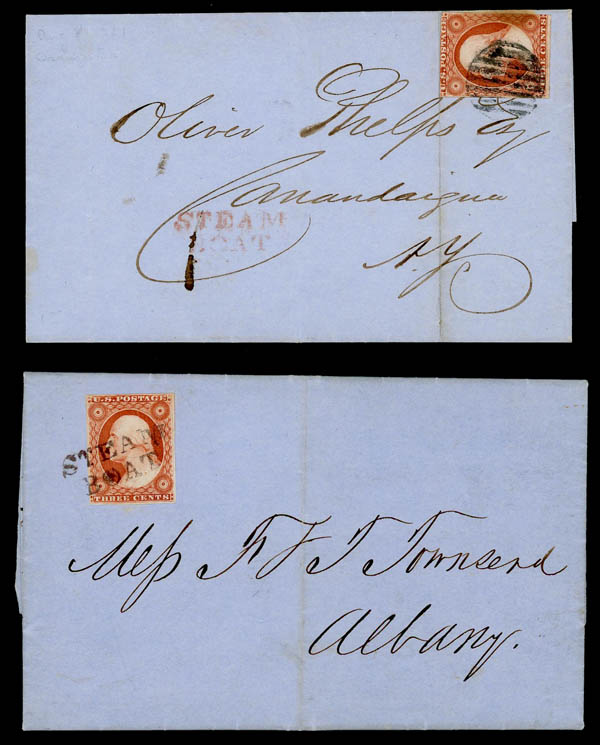 U.S. POSTAGE
CENTS
Oliver Phelps Esq
Canandaigua
STEAM
BOAT
N.Y.
U.S. POSTAGE
STEAM
BOAT
THREE CENTS
Mess F & T Townsend
Albany.